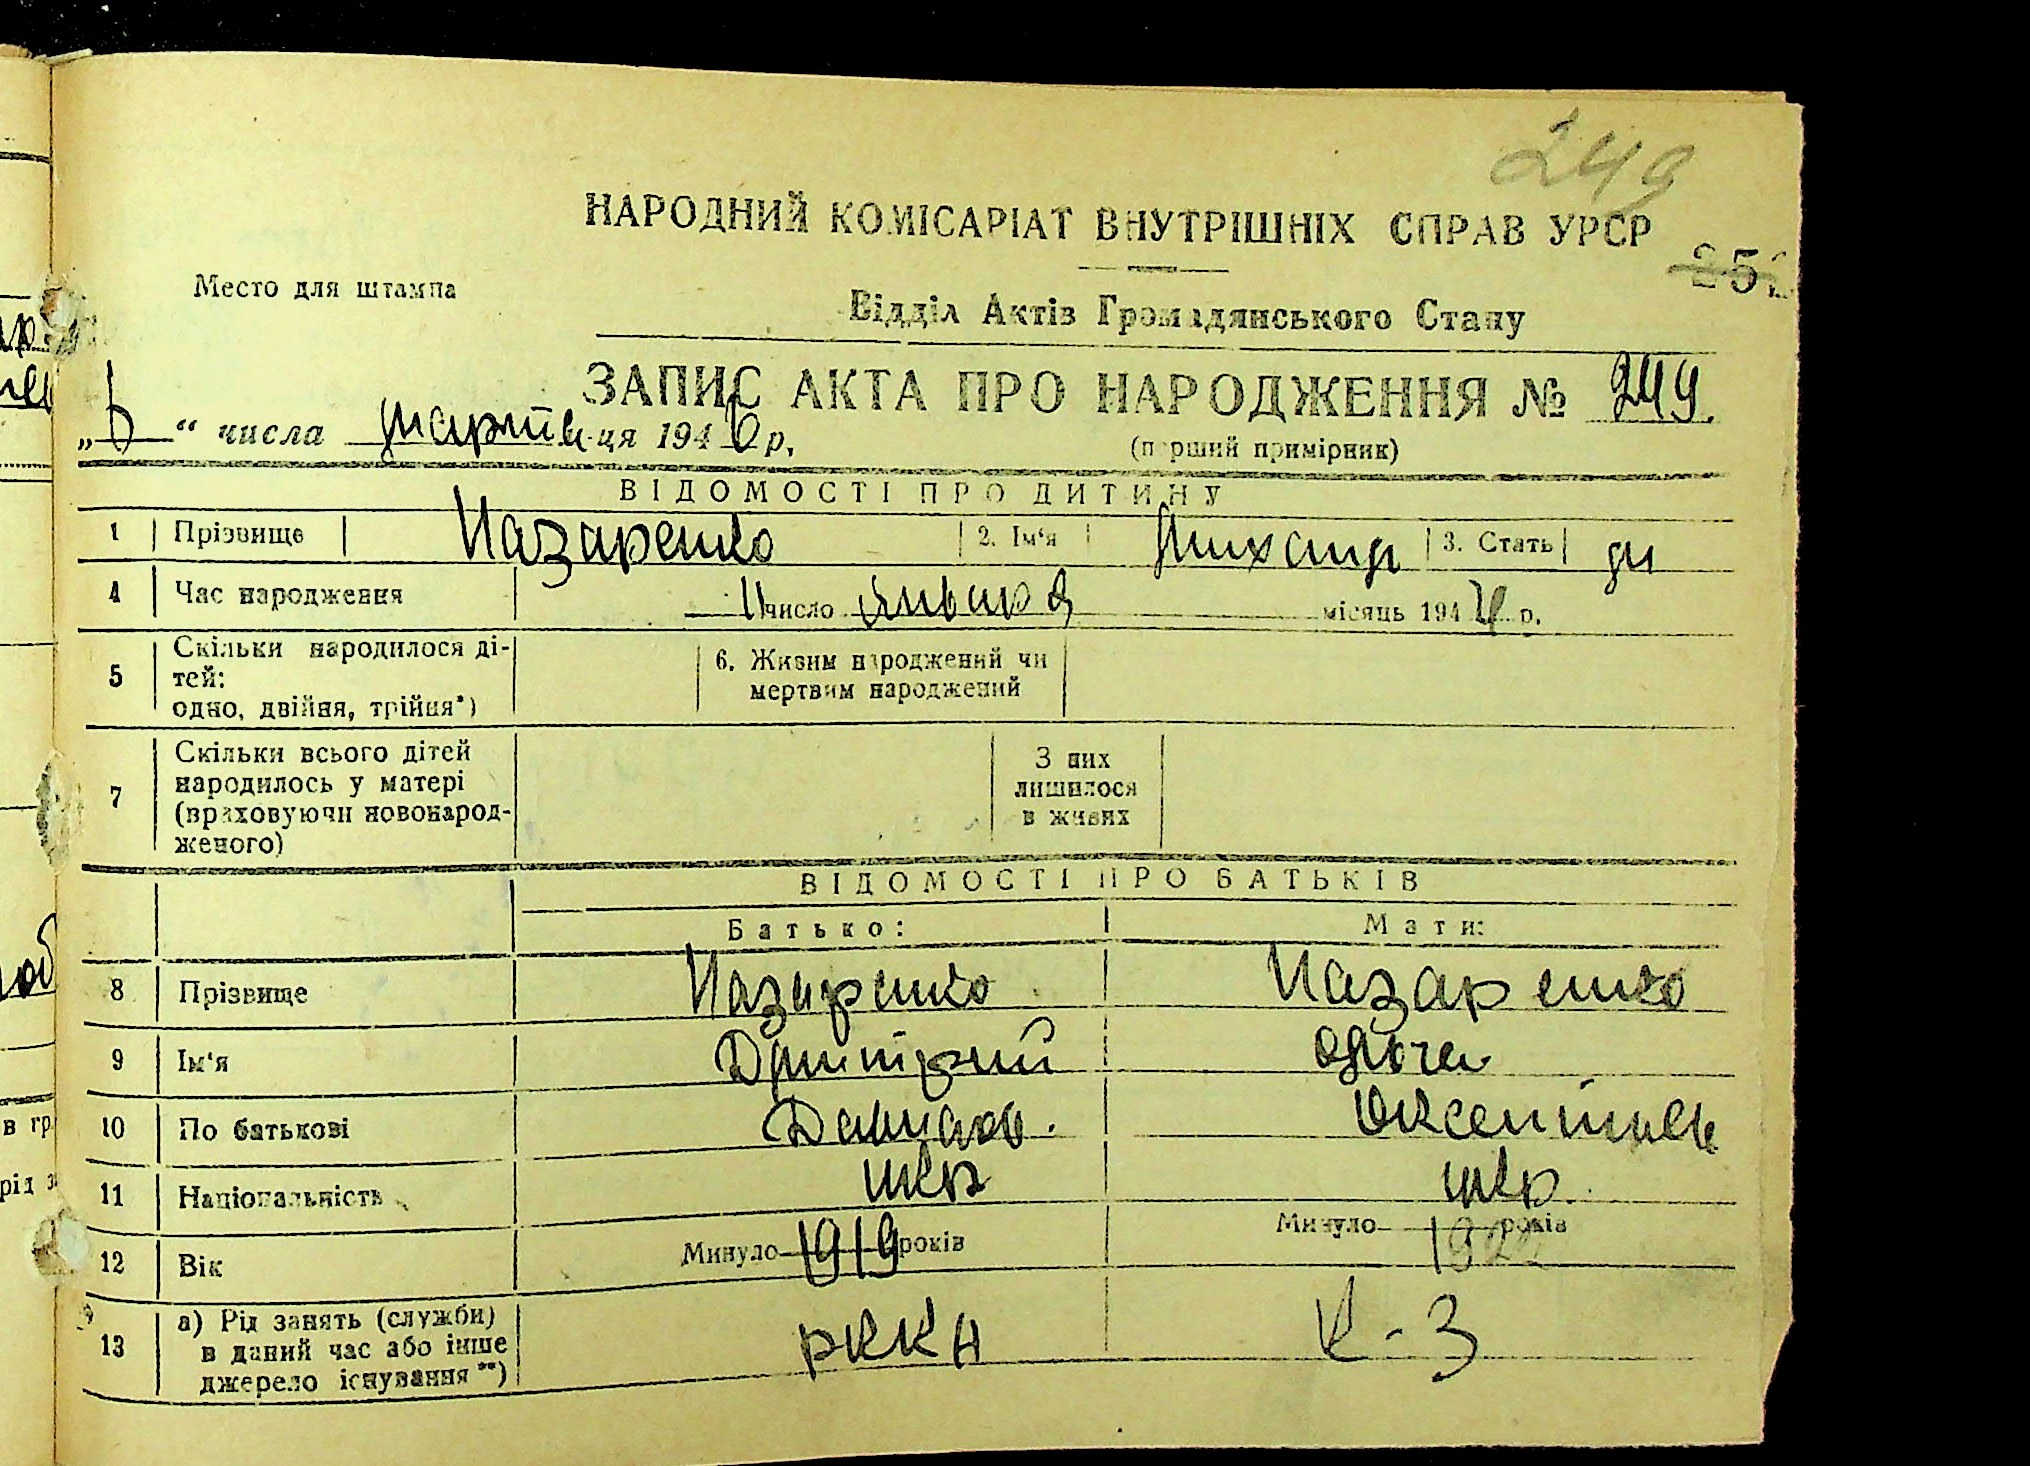 249
НАРОДНИЙ КОМІСАРІАТ ВНУТРІШНІХ СПРАВ УРСР
Место для штампа
Відділ Актів Громадянського Стану
ЗАПИС АКТА ПРО НАРОДЖЕННЯ № 249.
„6“ числа марта м-ця 1946 р.
(перший примірник)
ВІДОМОСТІ ПРО ДИТИНУ
1 Прізвище Назаренко 2. Ім'я Михаил 3. Стать м
4 Час народження 11 число января місяць 194 р.
5 Скільки народилося ді-
тей:
одно, двійня, трійня*)
6. Живим народжений чи
мертвим народжений
7 Скільки всього дітей
народилось у матері
(враховуючи новонарод-
женого)
З них
лишилося
в живих
ВІДОМОСТІ ПРО БАТЬКІВ
Батько: Мати:
8 Прізвище Назаренко Назаренко
9 Ім'я Дмитрий
10 По батькові
11 Національність укр укр.
12 Вік Минуло 1919 років Минуло 1922 років
13 а) Рід занять (служби)
в даний час або інше
джерело існування**)
РККА К-З